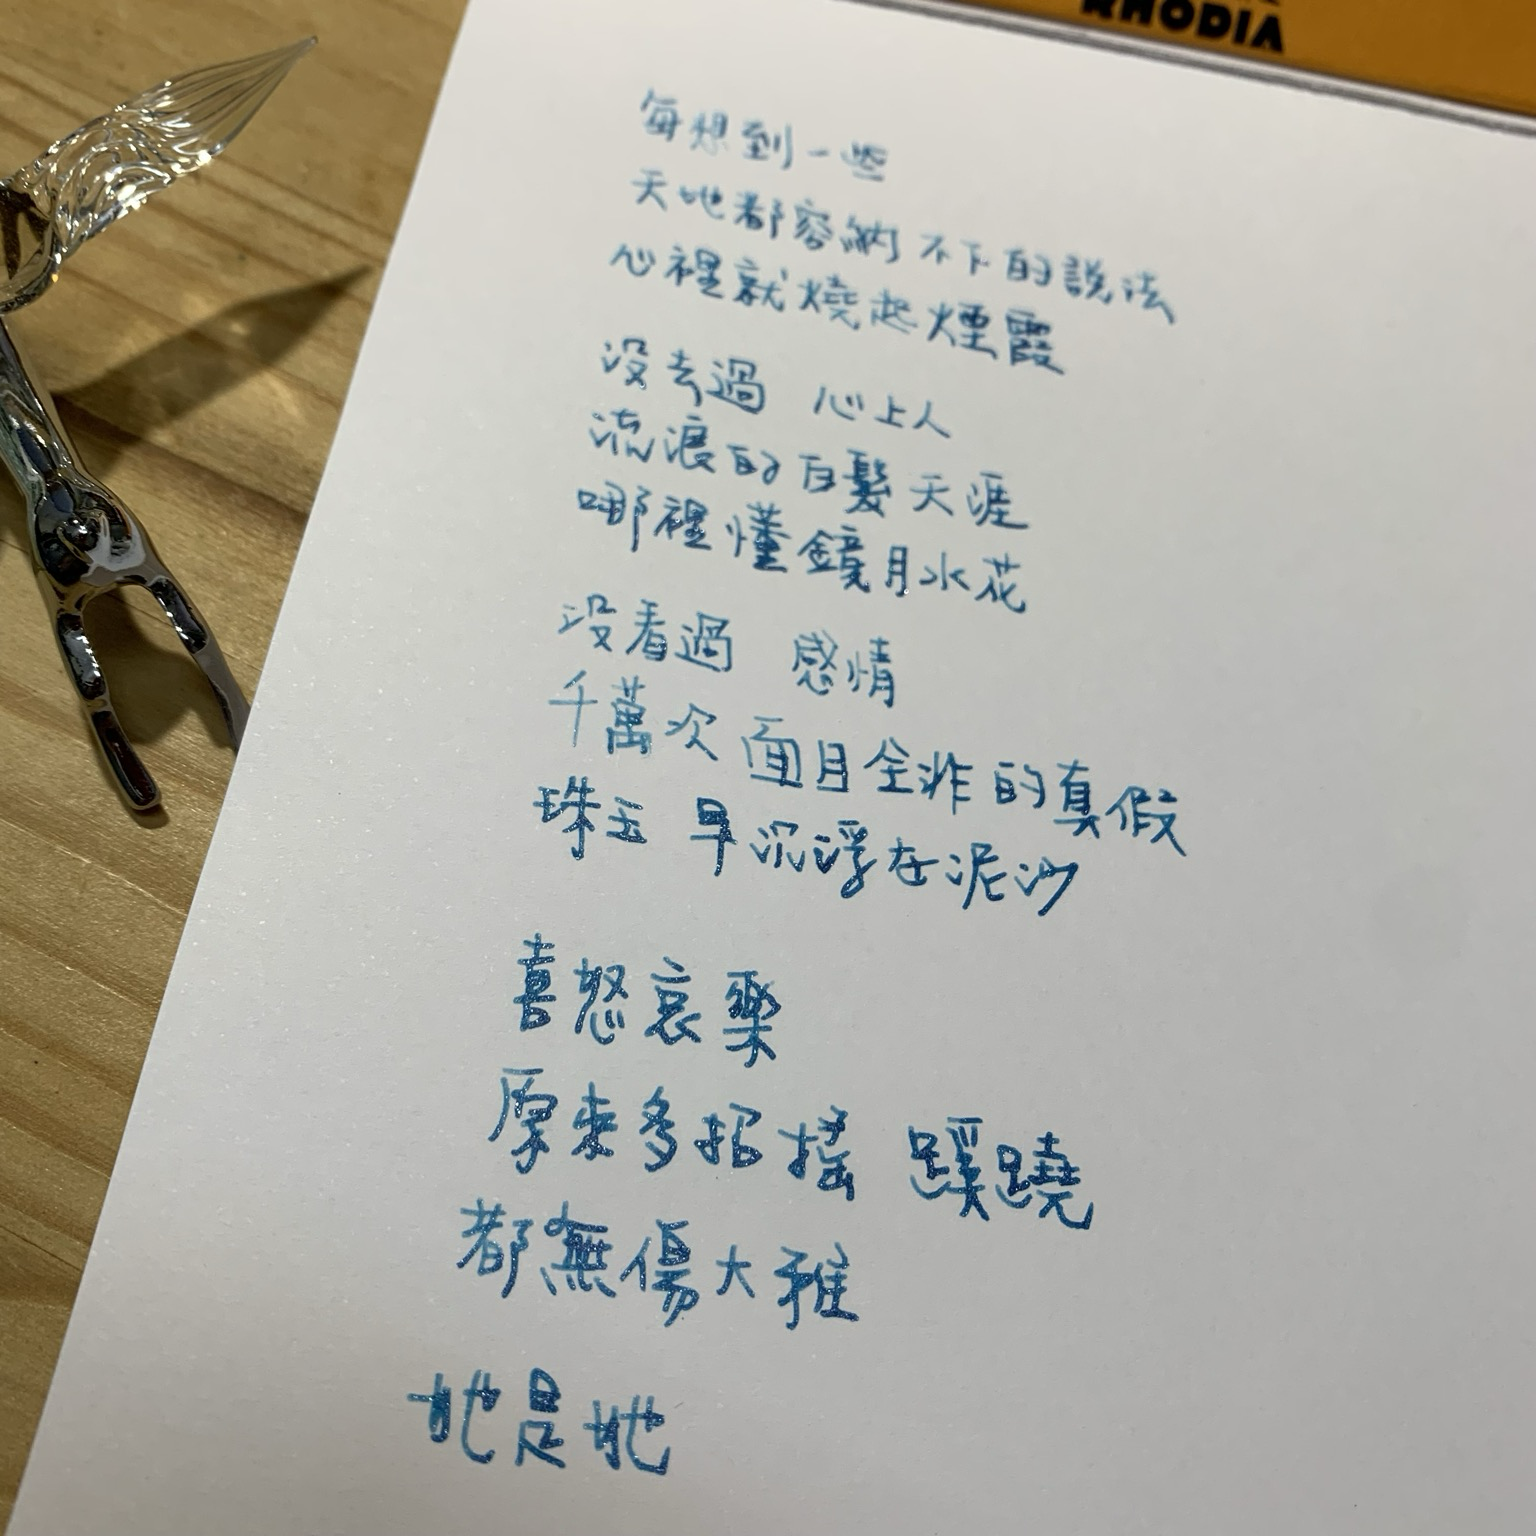 RHODIA
每想到一些
天地都容納不下的說法
心裡就燒起煙霞
沒去過 心上人
流浪的白髮天涯
哪裡懂鏡月水花
沒看過 感情
千萬次 面目全非的真假
珠玉 早沉浮在泥沙
喜怒哀樂
原來多招搖 蹊蹺
都無傷大雅
她是她